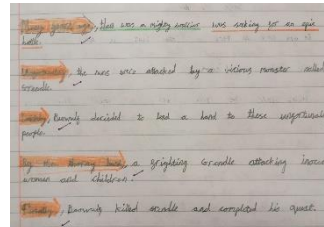 Many years ago, there was a mighty warrior was seking for an epic
battle.
the men were attacked by a vicious monster called
Grendle.
decided to lead a hand to these unfortunate
people.
By the a grighting Grendle attacking
women and children.
Finally, killed Grendle and completed his quest.